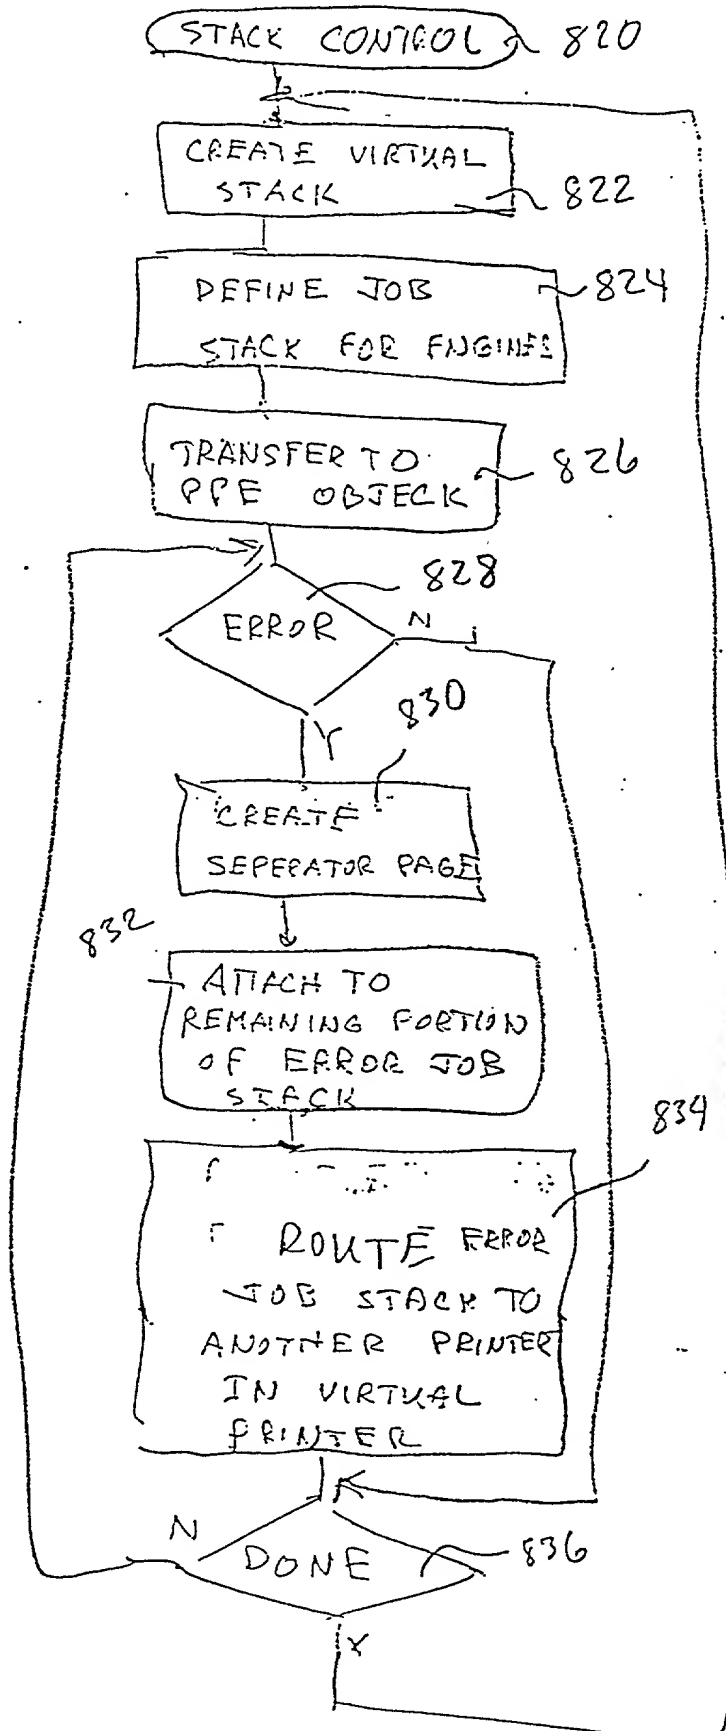 STACK CONTROL 820
CREATE VIRTUAL
STACK 822
DEFINE JOB 824
STACK FOR ENGINES
TRANSFER TO
PPE OBJECK 826
828
ERROR N
Y 830
CREATE
SEPERATOR PAGE
832
ATTACH TO
REMAINING PORTION
OF ERROR JOB
STACK
834
ROUTE ERROR
JOB STACK TO
ANOTHER PRINTER
IN VIRTUAL
PRINTER
N
DONE 836
Y